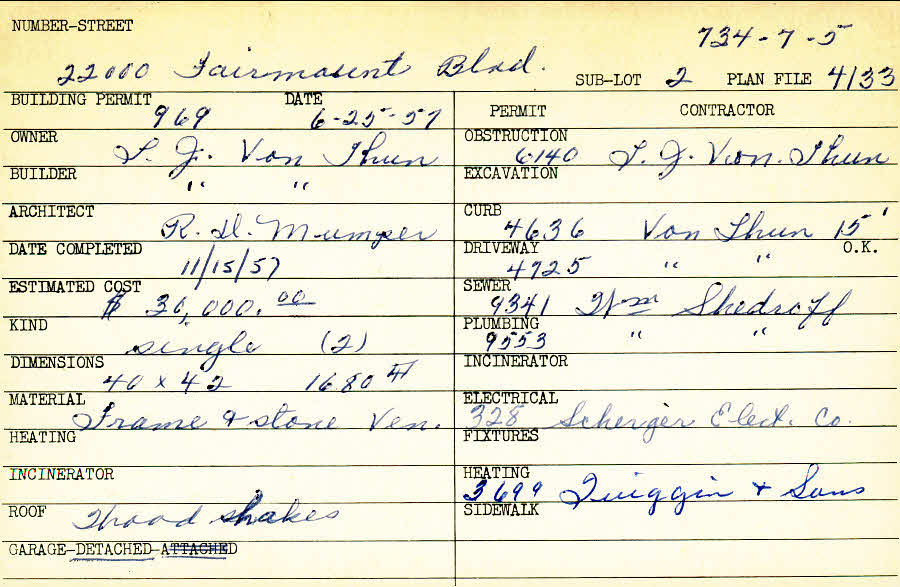 NUMBER-STREET
734-7-5
22000 Fairmount Blvd.
SUB-LOT 2 PLAN FILE 4133
BUILDING PERMIT 969 DATE 6-25-57
OWNER
T. J. Von Thun
BUILDER
" "
ARCHITECT
R. H. Mumper
DATE COMPLETED
11/15/57
ESTIMATED COST
$ 30,000.00
KIND
single (2)
DIMENSIONS
40 x 42 1680 #
MATERIAL
Frame & stone Ven.
HEATING
INCINERATOR
ROOF Wood shakes
GARAGE-DETACHED-ATTACHED
PERMIT CONTRACTOR
OBSTRUCTION
6140 T. J. Von. Thun
EXCAVATION
CURB
4636 Von Thun 15'
DRIVEWAY O.K.
4725 " "
SEWER
9341 Wm Shedroff
PLUMBING
9553 " "
INCINERATOR
ELECTRICAL
328 Scherger Elect. Co.
FIXTURES
HEATING
3699 Quiggin & Sons
SIDEWALK